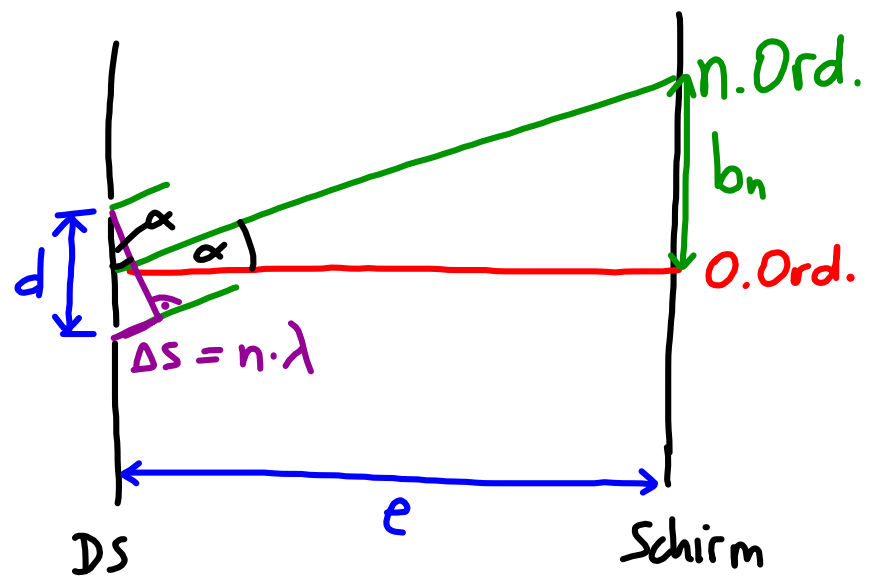 n.Ord.
α
bn
α
0.Ord.
d
Δs = n·λ
e
DS
Schirm